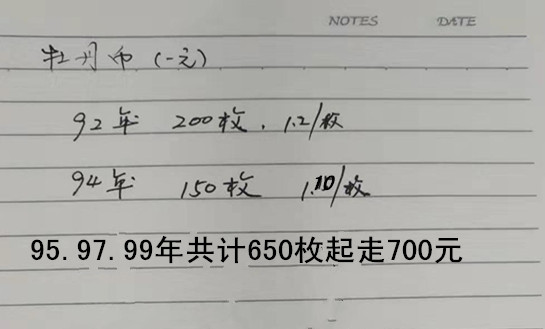 NOTES DATE
牡丹币 (一元)
92年 200枚. 1.2/枚
94年 150枚 1.10/枚
95.97.99年共计650枚起走700元